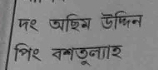 দং অছিম উদ্দিন
পিং বশতুল্যাহ